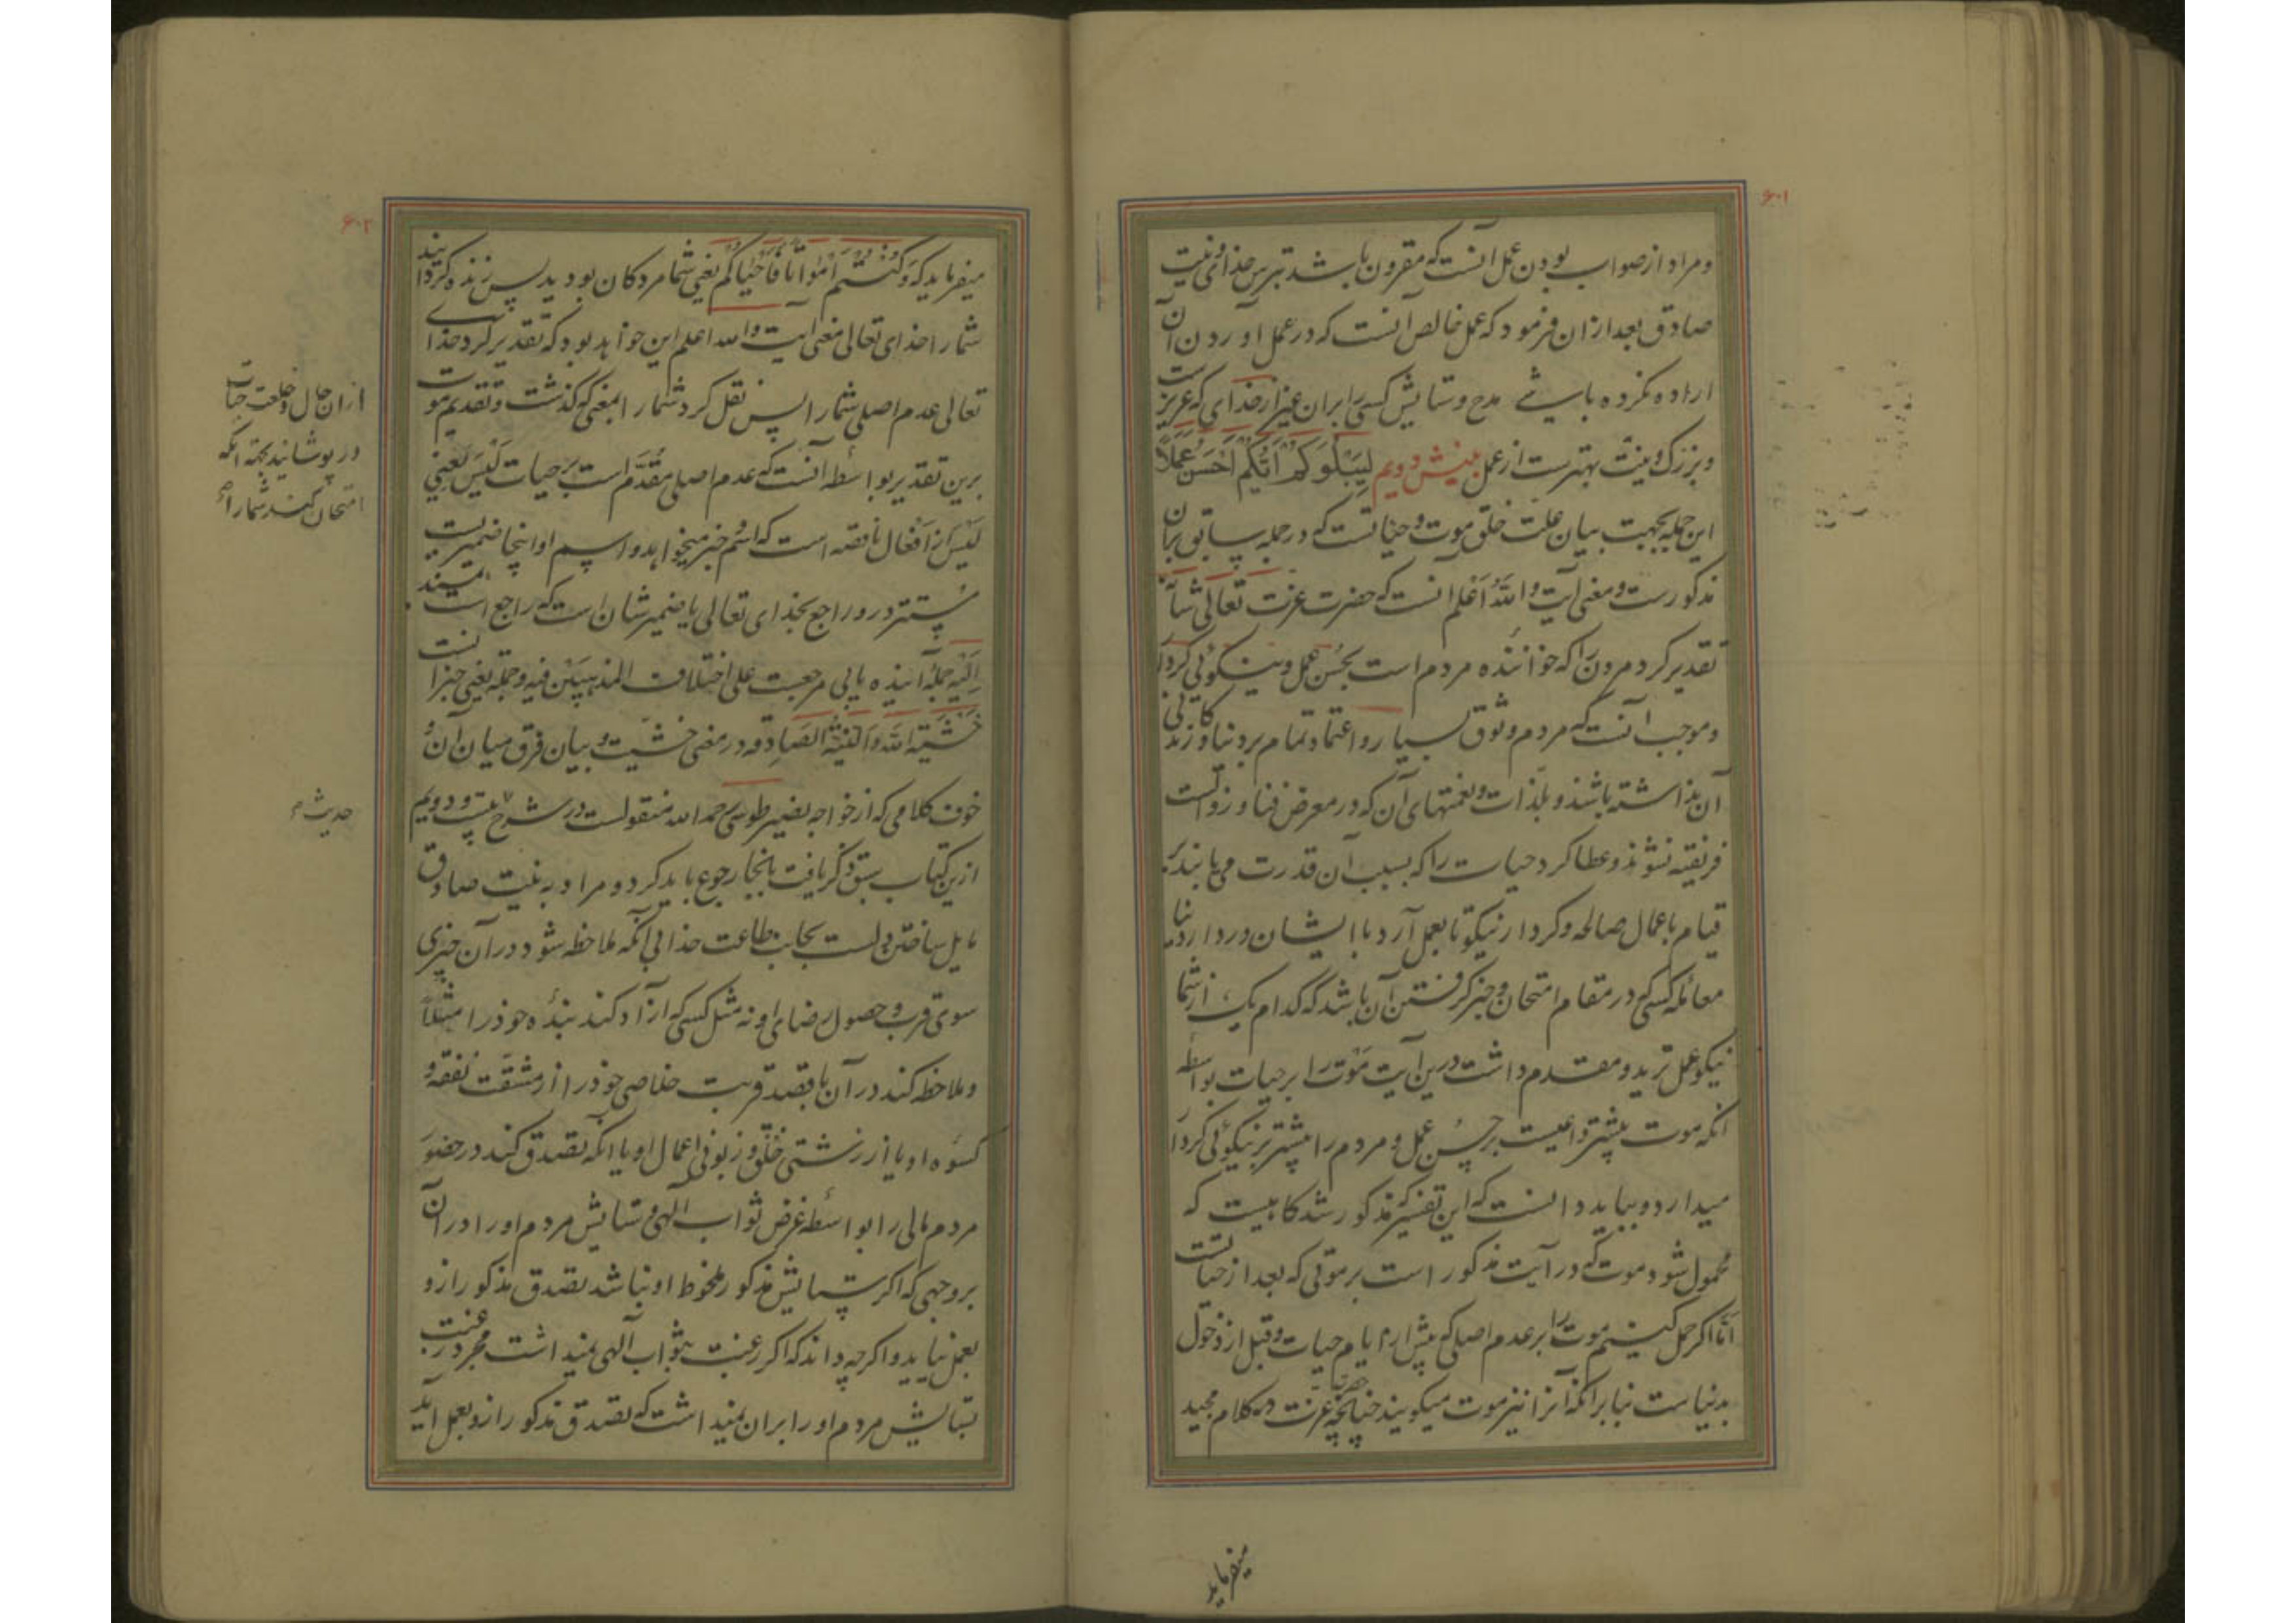 ۶۰۱
ومراد از صواب بودن عمل آنست که مقرون باشد بترس خدای و نیت
صادق بعد ازان فرمود که عمل خالص آنست که در عمل اوردن آن
اراده نکرده باشی مدح وستایش کسی را بران غیر از خدای که عزیز ست
و بزرک و نیت بهتر ست از عمل بینش دویم لِیَبْلُوَکُمْ اَیُّکُمْ اَحْسَنُ عَمَلًا
این جمله بجهت بیان علت خلق موت و حیاتست که در جمله سابق بران
مذکور ست و معنی آیت والله اعلم آنست که حضرت عزت تعالی شانه
تقدیر کرد مردن را که خواننده مردم است بحسن عمل و نیکوئی کردار
وموجب آنست که مردم وثوق بسیار و اعتماد تمام بر دنیا و زندکانی
آن نداشته باشند و بلذات و نعمتهای آن که در معرض فنا و زوالست
فریفته نشوند و عطا کرد حیات را که بسبب آن قدرت می یابند بر
قیام باعمال صالحه و کردار نیکو تا بعمل آرد با ایشان در دار دنیا
معامله کسی که در مقام امتحان و خبر کرفتن آن باشد که کدام یک از شما
نیکو عمل ترید و مقدم داشت درین آیت موت را بر حیات بواسطه
انکه موت بیشتر داعیست بر حسن عمل و مردم را بیشتر بر نیکوئی کردار
میدارد و بباید دانست که این تفسیر که مذکور شد کاهیست که
محمول شود موت که در آیت مذکور است بر موتی که بعد از حیاتست
امّا اکر حمل کنیم موت را بر عدم اصلی که پیش از ایام حیات و قبل از دخول
بدنیاست بنا برانکه آنرا نیز موت میکویند چنانچه حضرت عزت در کلام مجید
میفرماید
۶۰۲
میفرماید که وَکُنْتُمْ اَمْوَاتًا فَاَحْیَاکُمْ یعنی شما مردکان بودید پس زنده کردانید
شما را خدای تعالی معنی آیت والله اعلم این خواهد بود که تقدیر کرد خدای
تعالی عدم اصلی شما را پس نقل کرد شما را بمعنی که کذشت و تقدیم موت
برین تقدیر بواسطه آنست که عدم اصلی مقدّم است بر حیات لَیْسَ یَعْنِی
لَیْسَ از افعال ناقصه است که اسم و خبر میخواهد و اسم او اینجا ضمیریست
مستتر درو راجع بخدای تعالی یا ضمیر شان است که راجع است
اِلَیْهِ جمله آینده یا بی مرجعست علی اختلاف المذهبین فیه و جمله یعنی خبر آنست
خَشْیَةُ اللهِ وَالنِّیَّةُ الصَّادِقَه در معنی خشیت و بیان فرق میان آن و
خوف کلامی که از خواجه نصیر طوسی رحمه الله منقولست در شرح بیست و دویم
ازین کتاب سبق ذکر یافت بانجا رجوع باید کرد و مراد به نیت صادق
مایل ساختن دلست بجانب طاعت خدا بی آنکه ملاحظه شود در آن چیزی
سوی قرب و حصول رضای او نه مثل کسی که آزاد کند بنده خود را مثلاً
و ملاحظه کند در آن با قصد قربت خلاصی خود را از مشقت نفقه و
کسوه او یا از زشتی خلق و زبونی اعمال او یا انکه تصدق کند در حضور
مردم مالی را بواسطه غرض ثواب الهی و ستایش مردم او را در آن
بروجهی که اکر ستایش مذکور ملحوظ او نباشد تصدق مذکور ازو
بعمل نیاید و اکرچه داند که اکر رغبت بثواب الهی نمیداشت مجرد رغبت
بستایش مردم او را بران نمیداشت که تصدق مذکور ازو بعمل آید
ازان حال و خلعت حیات
در پوشانید بجهة انکه
امتحان کند شما را
حدیث